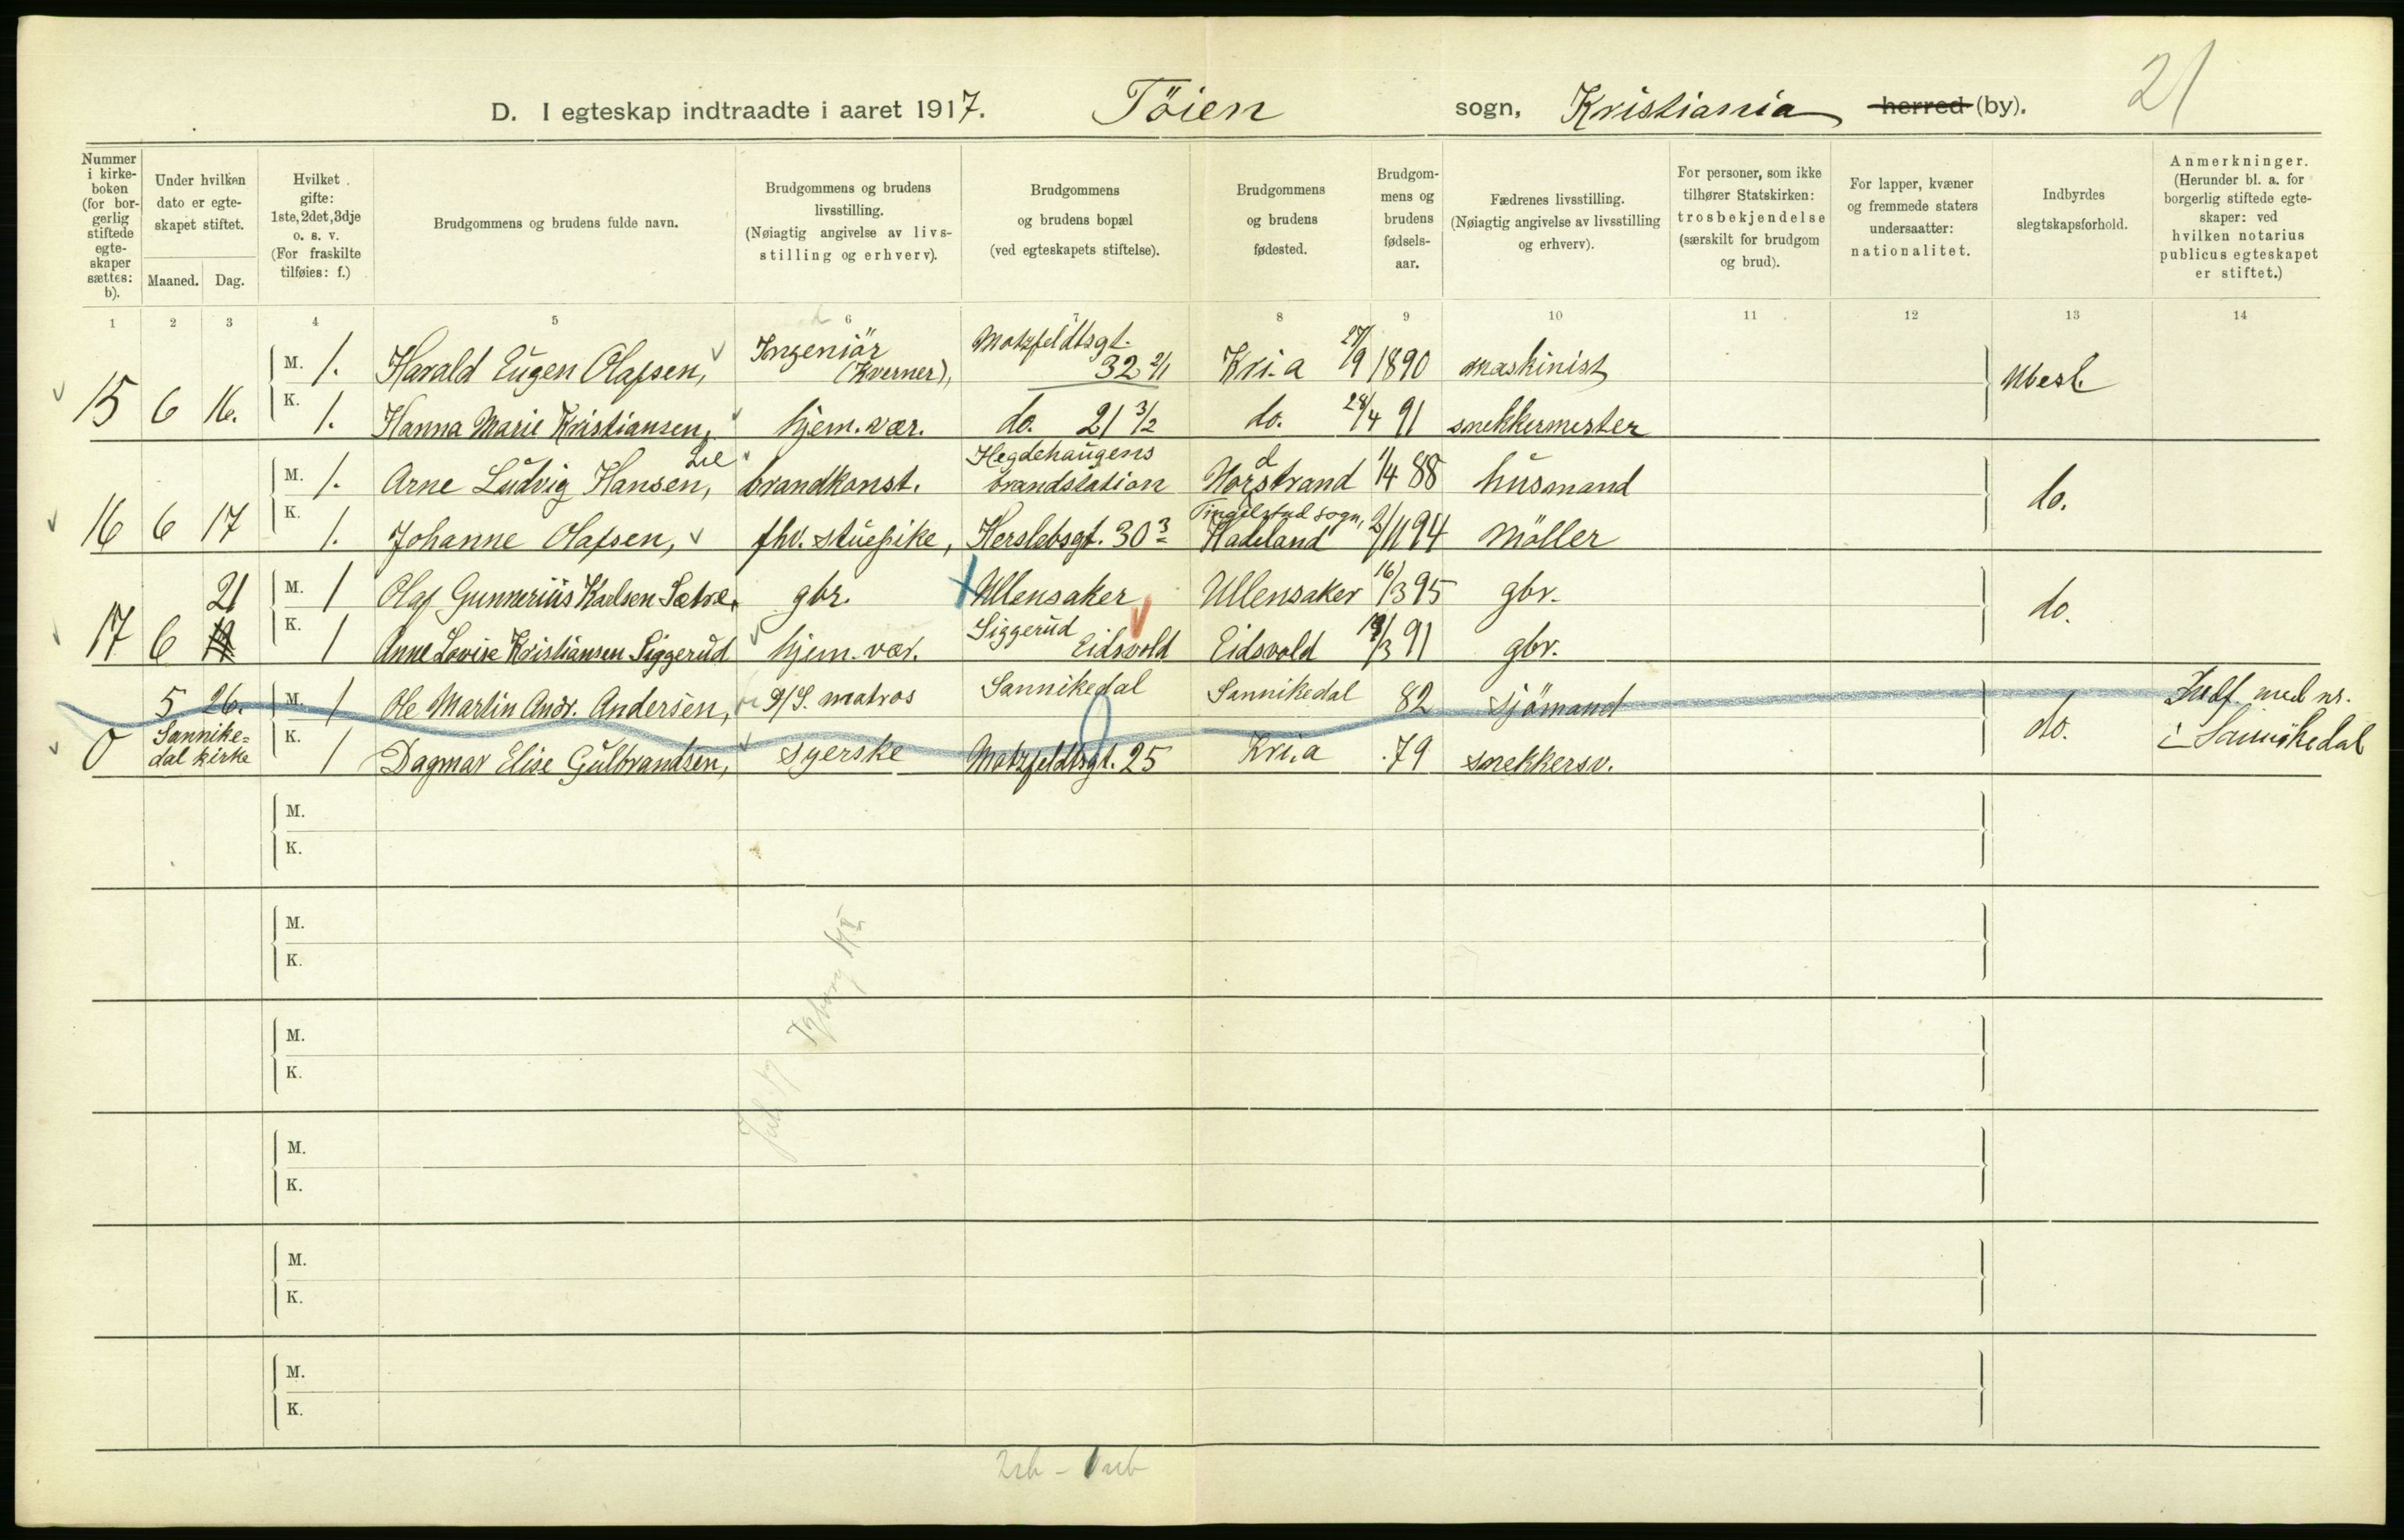 21
D. I egteskap indtraadte i aaret 1917. Töien sogn, Kristiania herred (by).
Nummer i kirkeboken (for borgerlig stiftede egteskaper sættes: b).
Under hvilken dato er egteskapet stiftet.
Maaned. Dag.
Hvilket gifte: 1ste, 2det, 3dje o. s. v. (For fraskilte tilføies: f.)
Brudgommens og brudens fulde navn.
Brudgommens og brudens livsstilling. (Nøiagtig angivelse av livsstilling og erhverv).
Brudgommens og brudens bopæl (ved egteskapets stiftelse).
Brudgommens og brudens fødested.
Brudgommens og brudens fødselsaar.
Fædrenes livsstilling. (Nøiagtig angivelse av livsstilling og erhverv).
For personer, som ikke tilhører Statskirken: trosbekjendelse (særskilt for brudgom og brud).
For lapper, kvæner og fremmede staters undersaatter: nationalitet.
Indbyrdes slegtskapsforhold.
Anmerkninger. (Herunder bl. a. for borgerlig stiftede egteskaper: ved hvilken notarius publicus egteskapet er stiftet.)
1 2 3 4 5 6 7 8 9 10 11 12 13 14
15 6 16. M. 1. Harald Eugen Olafsen, Ingeniör (Kverner), Motzfeldtsgt. 32 2/1 Kri.a 27/9 1890 maskinist Ubesl.
K. 1. Hanna Marie Kristiansen, hjem. vær. do. 21 3/2 do. 28/4 91 snekkermester
16 6 17 M. 1. Arne Ludvig Hansen, Lie brandkonst. Hegdehaugens brandstation Nordstrand 1/4 88 husmand do.
K. 1. Johanne Olafsen, fhv. stuepike, Herslebsgt. 30 3 Tingelstad sogn, Hadeland 2/11 94 Möller
17 6 21 M. 1 Olaf Gunnerius Karlsen Sætre, gbr. Ullensaker Ullensaker 16/3 95 gbr. do.
K. 1 Anne Lovise Kristiansen Siggerud hjem. vær. Siggerud Eidsvold Eidsvold /3 91 gbr.
0 5 26. M. 1 Ole Martin Andr. Andersen, D/S. matros Sannikedal Sannikedal 82 sjömand do. Indf. med nr. i Sannikedal
Sannikedal kirke K. 1 Dagmar Elise Gulbrandsen, syerske Motzfeldtsgt. 25 Kri.a 79 snekkersv.
M.
K.
M.
K.
M.
K.
M.
K.
M.
K.
M.
K.